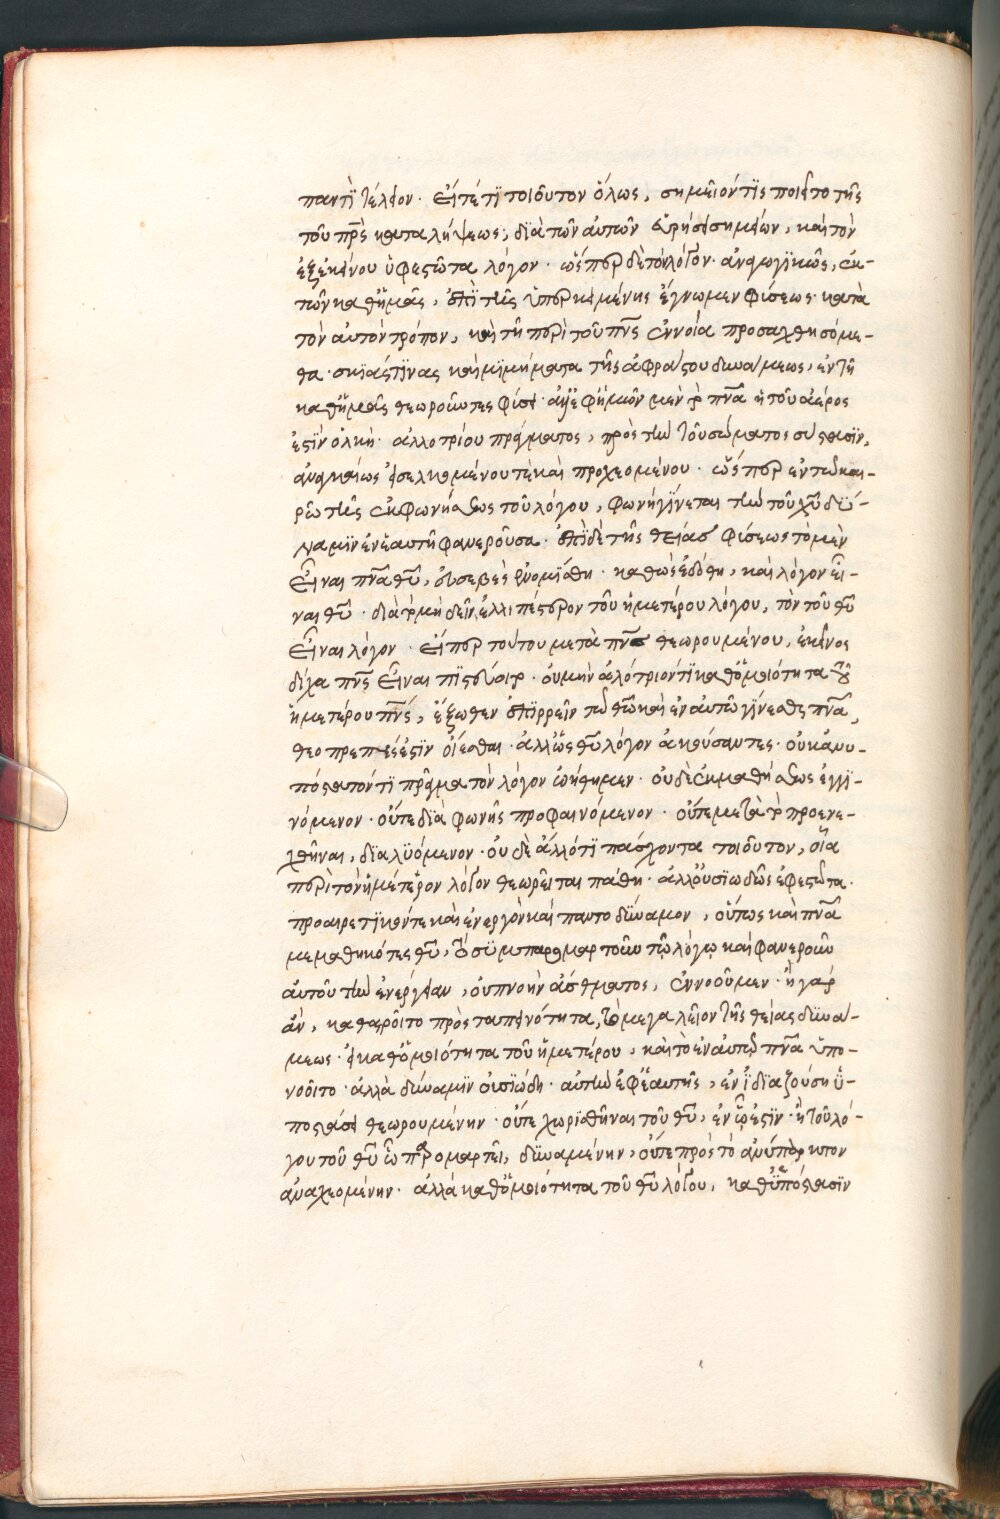 παντὶ τέλειον· εἴτέ τϊ τοιοῦτον ὅλως, σημεῖόν τϊς ποιεῖτο τῆς
τοῦ πρ̅ς καταλήψεως, δϊὰ τῶν αὐτῶν εὑρήσει σημείων, καὶ τὸν
ἐξ ἐκείνου ὑφεστῶτα λόγον· ὥσπερ δὲ τὸν λόγον ἀναγωγϊκῶς, ἐκ-
τῶν καθ' ἡμᾶς, ἐπϊ τῆς ὑπερκειμένης ἔγνωμεν φύσεως· κατὰ
τὸν αὐτὸν τρόπον, καὶ τῆ περὶ τοῦ πν̅ς ἐννοία προσαχθησόμε-
θα· σκϊάς τϊνας καὶ μϊμήματα τῆς ἀφράστου δυνάμεως, ἐν τῆ
καθ' ἡμᾶς θεωροῦντες φύσει· ἀλλ' ἐφ' ἡμῶν μὲν τὸ πν̅α ἡ τοῦ ἀέρος
ἐστϊν ὁλκή· ἀλλοτρίου πράγματος, πρὸς τὴν τοῦ σώματος σύστασϊν,
ἀναγκαίως εἰσελκομένου τὲ καὶ προχεομένου· ὥσπερ ἐν τῶ και-
ρῶ τῆς ἐκφωνήσεως τοῦ λόγου, φωνὴ γίνεται τὴν τοῦ χ̅υ δύ-
ναμϊν ἐν ἑαυτῆ φανεροῦσα· ἐπϊ δὲ τῆς θείας φύσεως τὸ μὲν
εἶναι πν̅α θ̅υ, εὐσεβὲς ἐνομίσθη· καθὼς ἐδόθη, καὶ λόγον εἶ-
ναι θ̅υ· διὰ τὸ μὴ δεῖν ἐλλιπέστερον τοῦ ἡμετέρου λόγου, τὸν τοῦ θ̅υ
εἶναι λόγον· εἴπερ τούτου μετὰ πν̅ς θεωρουμένου, ἐκεῖνος
δίχα πν̅ς εἶναι πϊστεύοιτο· οὐ μὴν ἀλότριόν τϊ καθ' ὁμοιότητα τοῦ
ἡμετέρου πν̅ς, ἔξωθεν ἐπϊρρεῖν τῶ θ̅ῶ καὶ ἐν αὐτῶ γίνεσθαι πν̅α,
θεοπρεπές ἐστϊν οἴεσθαι· ἀλλ' ὡς θ̅υ λόγον ἀκούσαντες· οὐκ ἀνυ-
πόστατόν τϊ πρᾶγμα τὸν λόγον ᾠήθημεν· οὐδὲ ἐκ μαθήσεως ἐγγϊ-
νόμενον· οὔτε δϊὰ φωνῆς προφαινόμενον· οὔτε μετὰ τὸ προενε-
χθῆναι, δϊαλϋόμενον· οὐδὲ ἄλλό τϊ πάσχοντα τοιοῦτον, οἷα
περὶ τὸν ἡμέτερον λόγον θεωρεῖται πάθη· ἀλλ' οὐσϊωδῶς ἐφεστῶτα·
προαιρετϊκόν τε καὶ ἐνεργὸν καὶ παντοδύναμον, οὕτως καὶ πν̅α
μεμαθηκότες θ̅υ, τὸ σϋμπαρομαρτοῦν τῷ λόγῳ καὶ φανεροῦν
αὐτοῦ τὴν ἐνεργειαν, οὐ πνοὴν ἄσθματος, ἐννοοῦμεν· ἢ γὰρ
ἂν, καθαιροῖτο πρὸς ταπεινότητα, τὸ μεγαλεῖον τῆς θείας δυνά-
μεως· εἰ καθ' ὁμοιότητα τοῦ ἡμετέρου, καὶ τὸ ἐν αὐτῶ πν̅α ὑπο-
νοοῖτο· ἀλλὰ δύναμϊν οὐσϊώδη· αὐτὴν ἐφ' ἑαυτῆς, ἐν ἰδϊαζούση ὑ-
ποστάσει θεωρουμένην· οὔτε χωρισθῆναι τοῦ θ̅υ, ἐν ᾧ ἐστϊν· ἢ τοῦ λό-
γου τοῦ θ̅υ ᾧ παρομαρτεῖ, δυναμένην, οὔτε πρὸς τὸ ἀνύπαρκτον
ἀναχεομένην· ἀλλὰ καθ' ὁμοιότητα τοῦ θ̅υ λόγου, καθ' ὑπόστασϊν